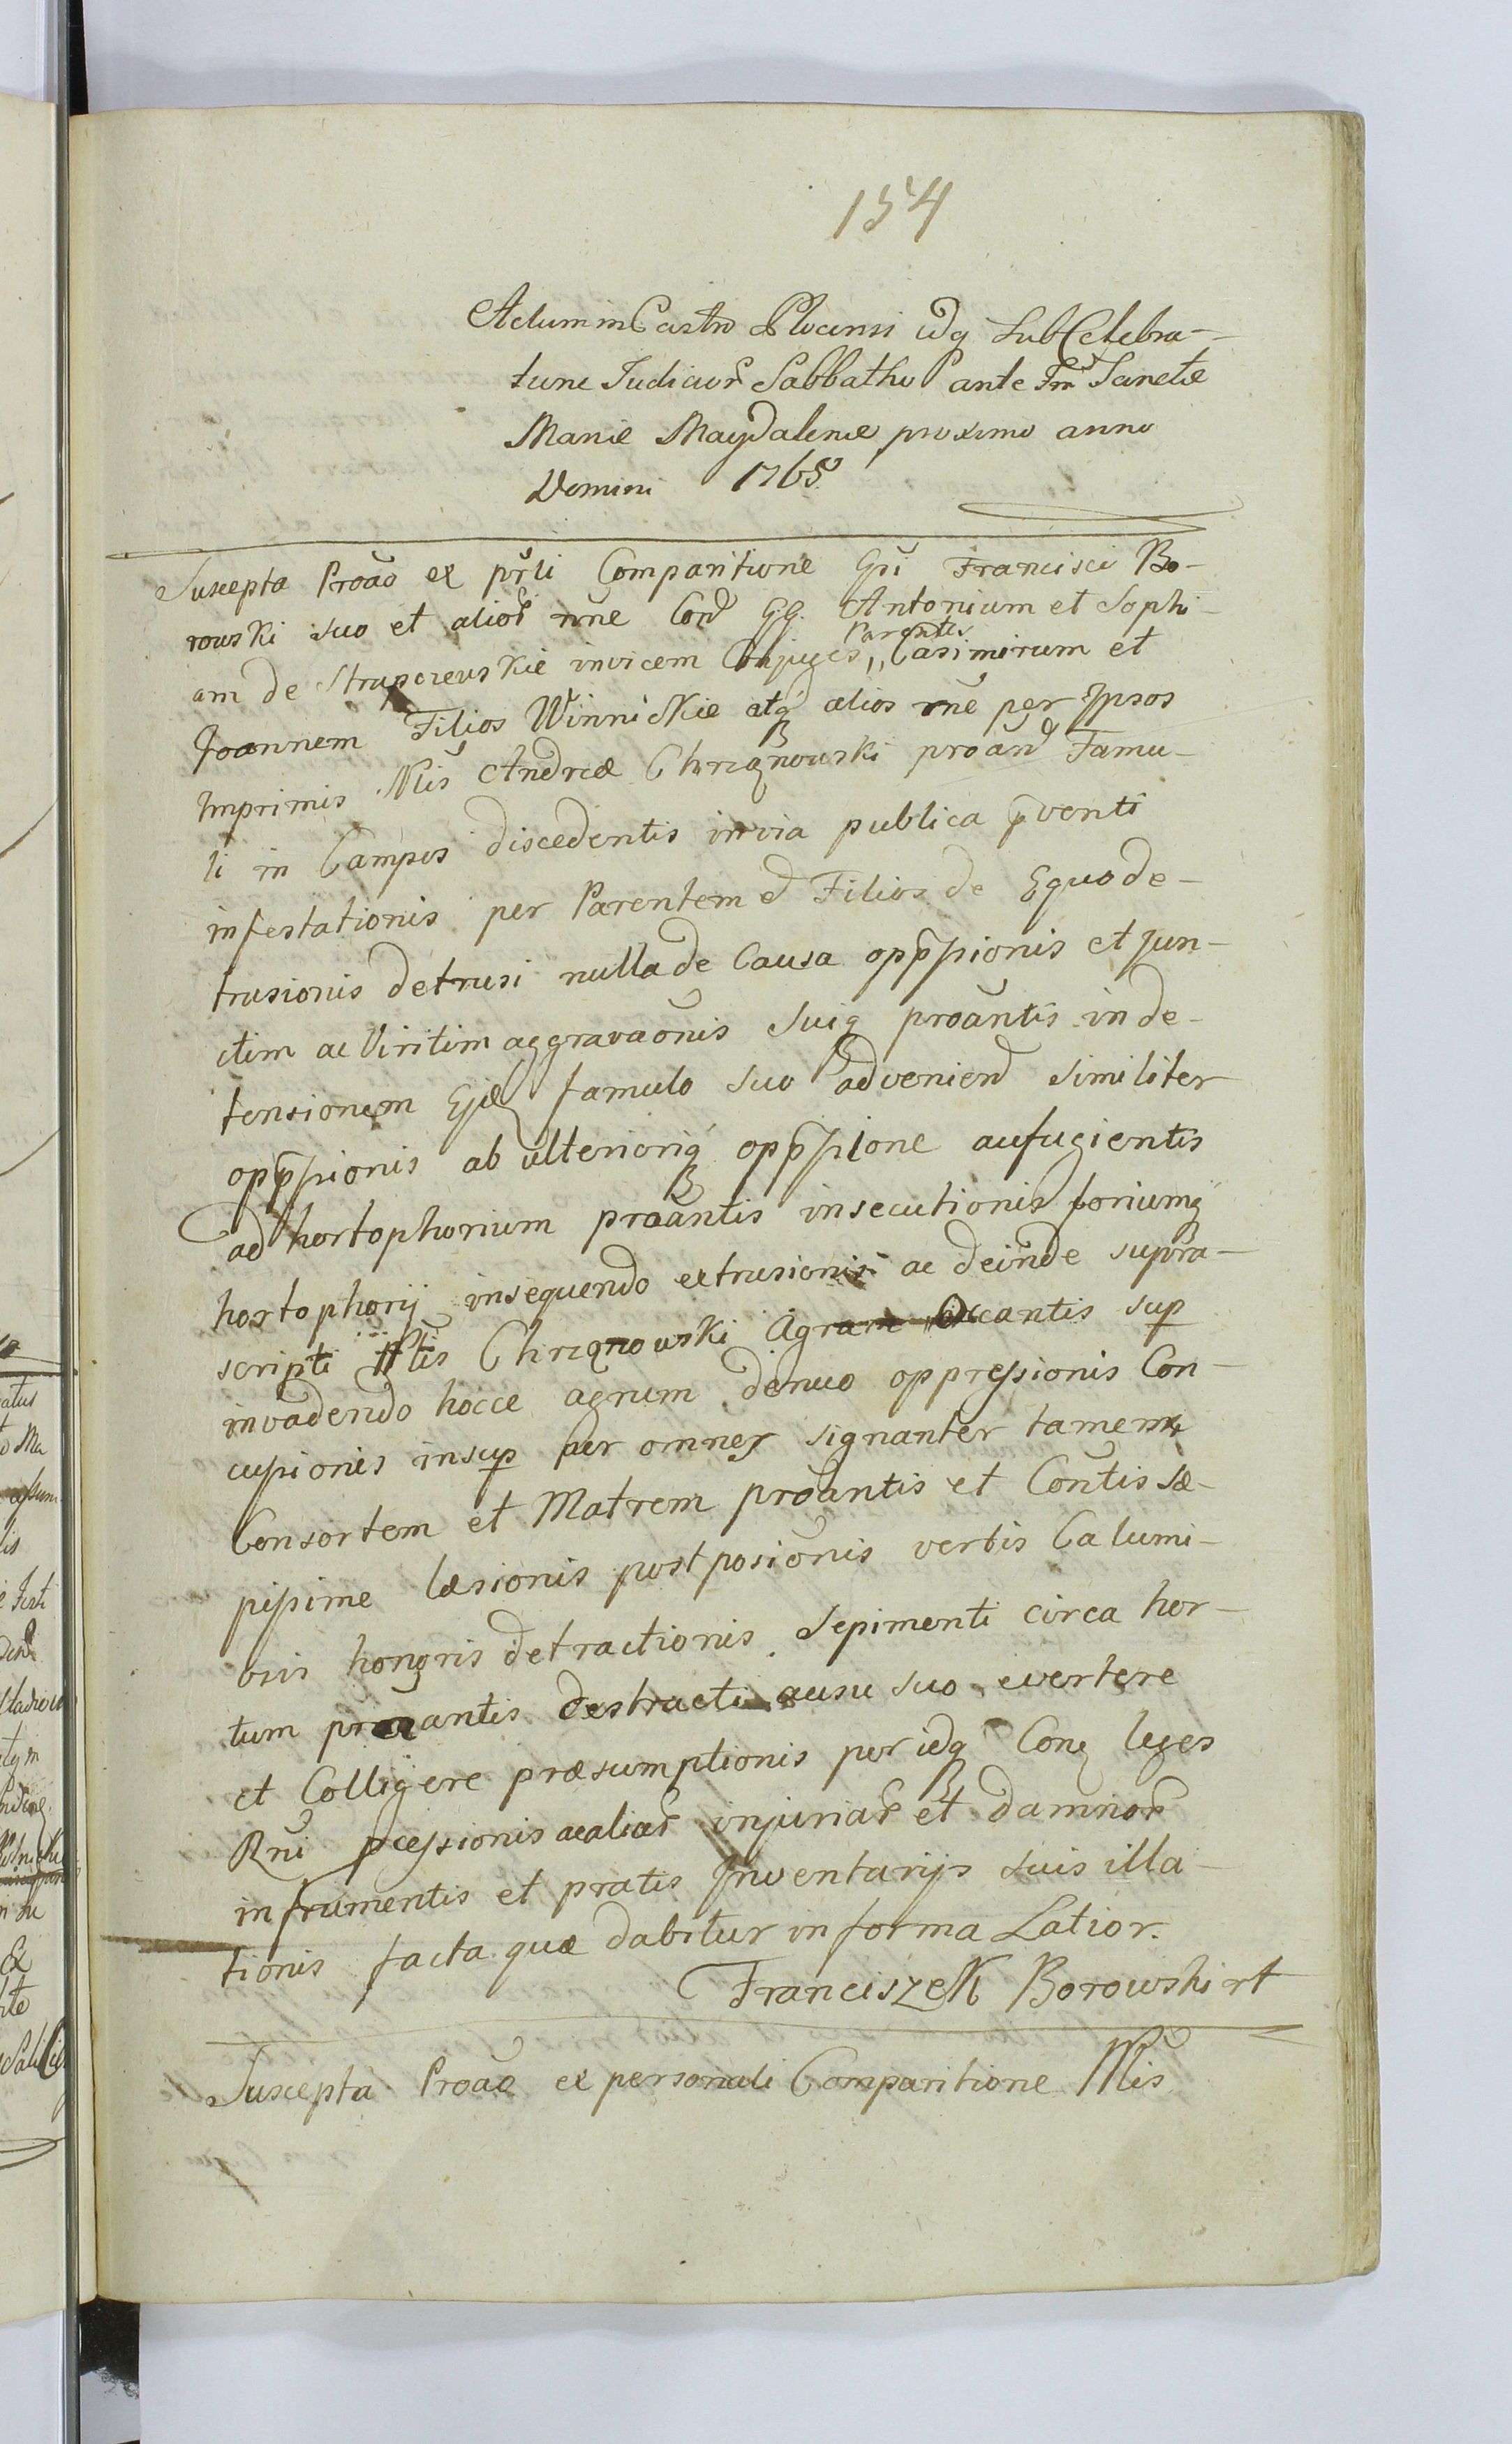 154
Actum in Castro Plocensi idq̃ sub Celebra-
tione Judicior̃ Sabbatho ante Fm̃ Sanctæ
Mariæ Magdalenæ proximo anno
Domini 1765
Suscepta Proão ex pr̃li Comparitione Gn̄i Francisci Bo-
rowski suo et alior̃ nñe Cond̃ G.G. Antonium et Sophi-
am de Strupczewskie invicem Conjuges, Parentes Casimirum et
Joannem Filios Winnickie atq̃ alios rñe per Ipsos
Imprimis Nlis Andreæ Chrzanowski proañd Famu-
li in Campos discedentis in via publica p̃venti
infestationis per Parentem et Filios de Equo de-
trusionis detrusi nulla de Causa opp̃ssionis et jun-
ctim ac Viritim aggravaõnis suiq̃ proãntis in de-
tensionem Ejd famulo suo adveniend similiter
opp̃ssionis ab ulterioriq̃ opp̃ssione aufugientis
ad hortophorium proãntis insecutionis foriumq̃
hortophorij insequendo extrusionis ac deinde supra-
scripti Nlis Chrzanowski Agrum sup
invadendo hocce agrum denuo oppressionis Con-
cussionis insup per omnes signanter tamen
Consortem et Matrem proãntis et Cõntis sæ-
pissime læsionis postposiõnis verbis Calumi-
osis honoris detractionis, Sepimenti circa hor-
tum proãntis destructi ausu suo evertere
et Colligere præsumptionis per idq̃ Conq̃ leges
Rñi p̃cessionis ac aliar̃ injuriar̃ et damnor̃
in frumentis et pratis Inventarijs suis illa-
tionis facta quæ dabitur in forma Latior.
Franciszek Borowski rt
Suscepta Proão ex personali Comparitione Nlis